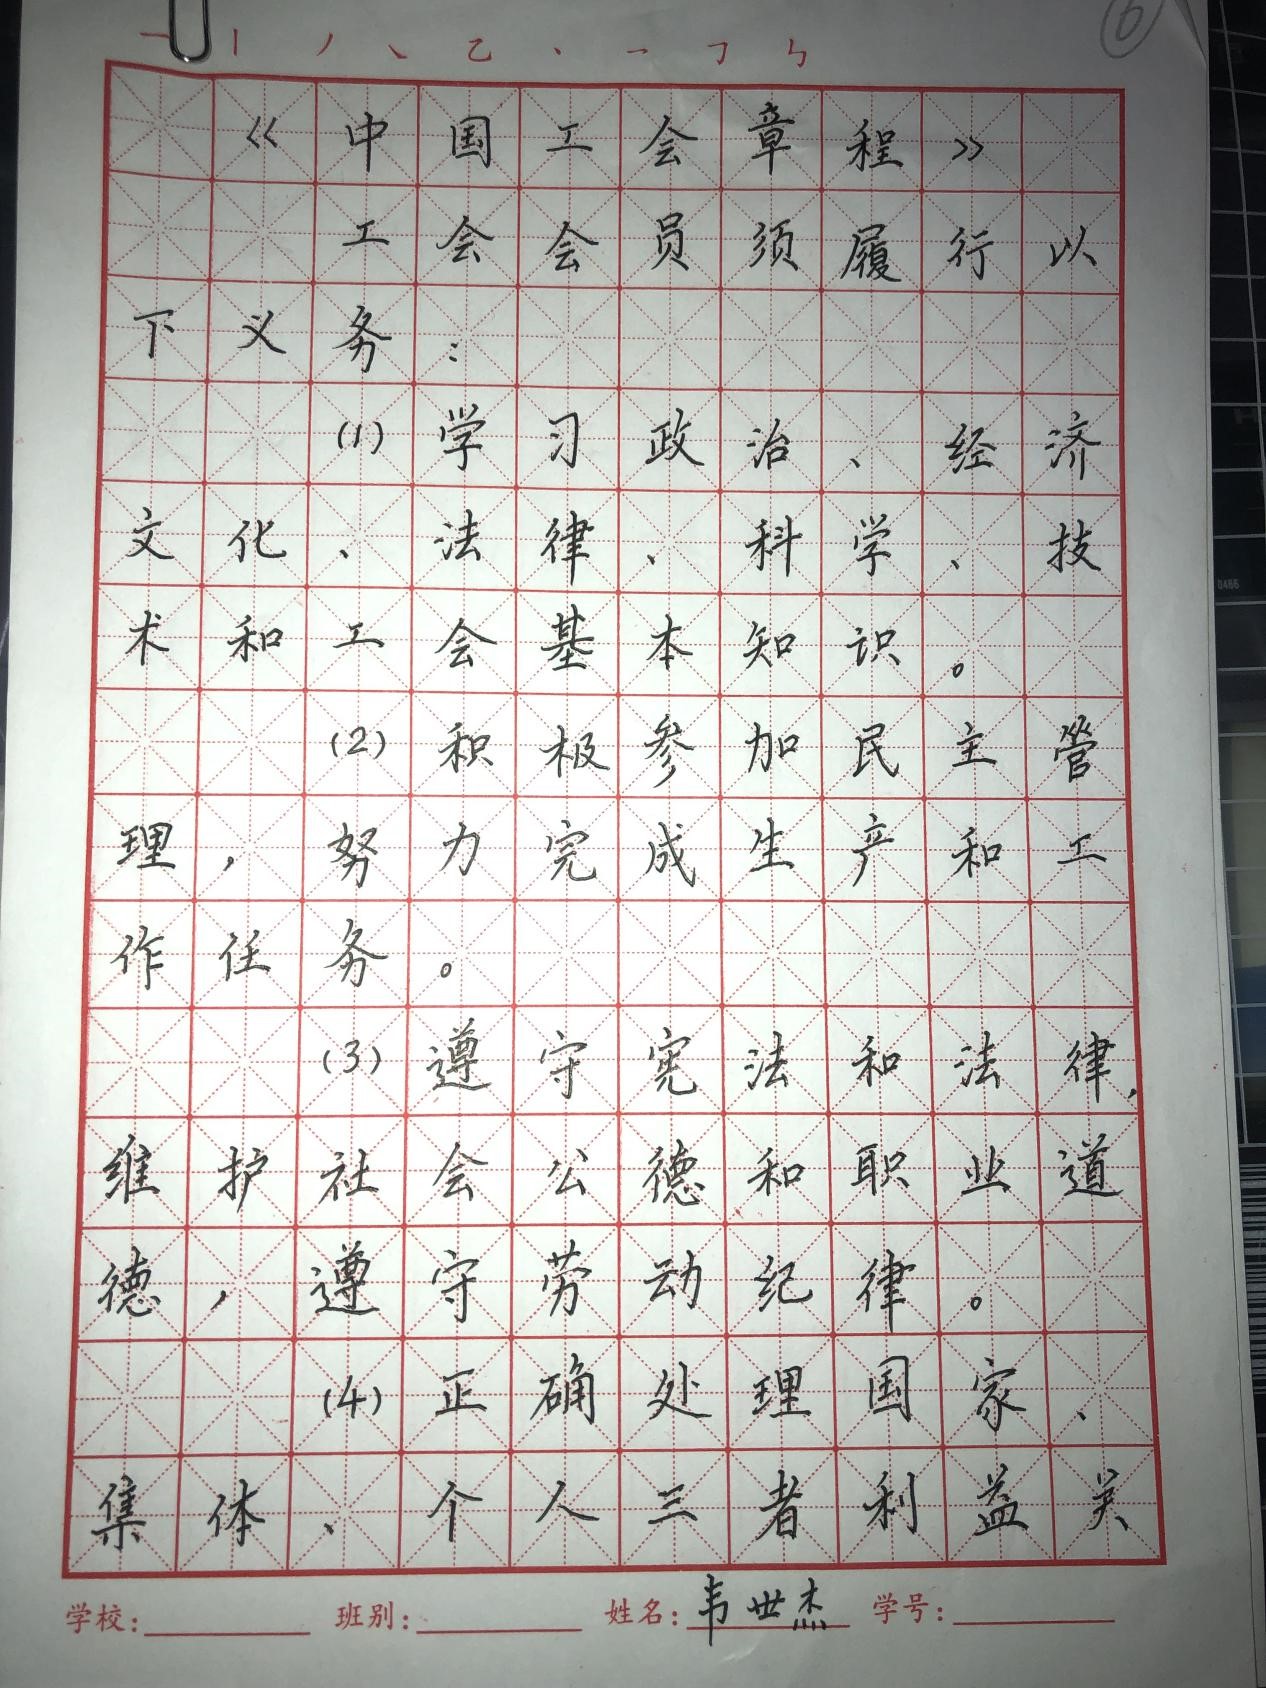 6
一丨丿㇏乙丶㇀𠃌㇉
《中国工会章程》
工会会员须履行以
下义务：
(1)学习政治、经济
文化、法律、科学、技
术和工会基本知识。
(2)积极参加民主管
理，努力完成生产和工
作任务。
(3)遵守宪法和法律，
维护社会公德和职业道
德，遵守劳动纪律。
(4)正确处理国家、
集体、个人三者利益关
学校： 班别： 姓名：韦世杰 学号：
0466